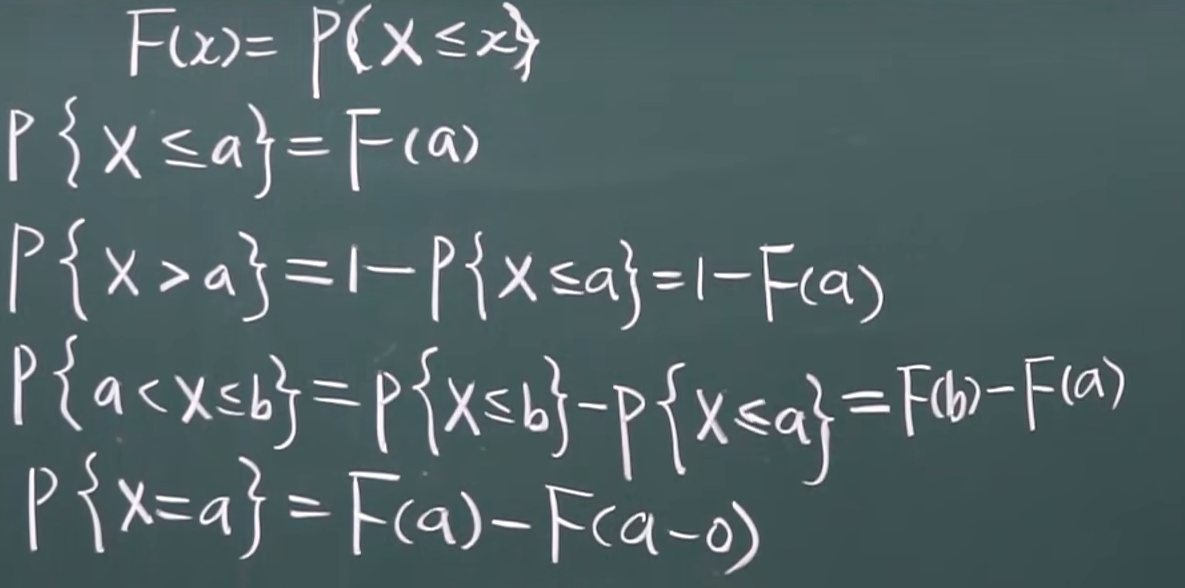 F(x)= P{X≤x}
P{X≤a}=F(a)
P{X>a}=1-P{X≤a}=1-F(a)
P{a<X≤b}=P{X≤b}-P{X≤a}=F(b)-F(a)
P{X=a}=F(a)-F(a-0)